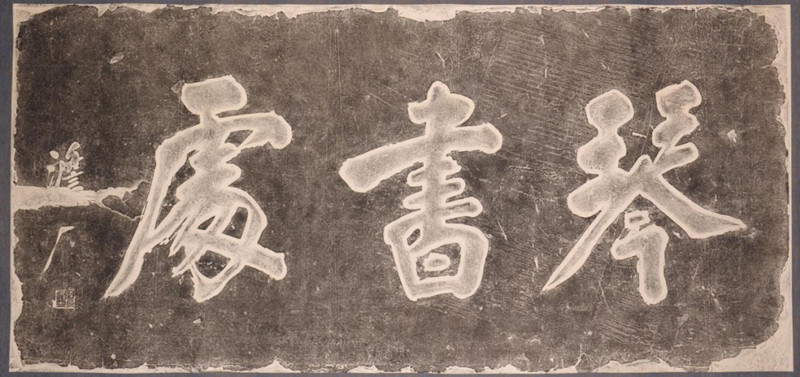 琴書處